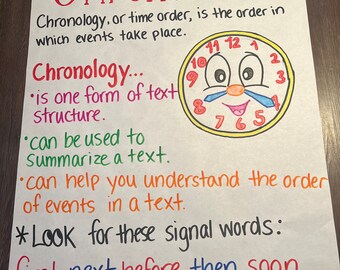 Chronology, or time order, is the order in
which events take place.
Chronology...
• is one form of text
structure.
• can be used to
summarize a text.
• can help you understand the order
of events in a text.
*Look for these signal words:
first next before then soon
12
1
2
3
4
5
6
7
8
9
10
11